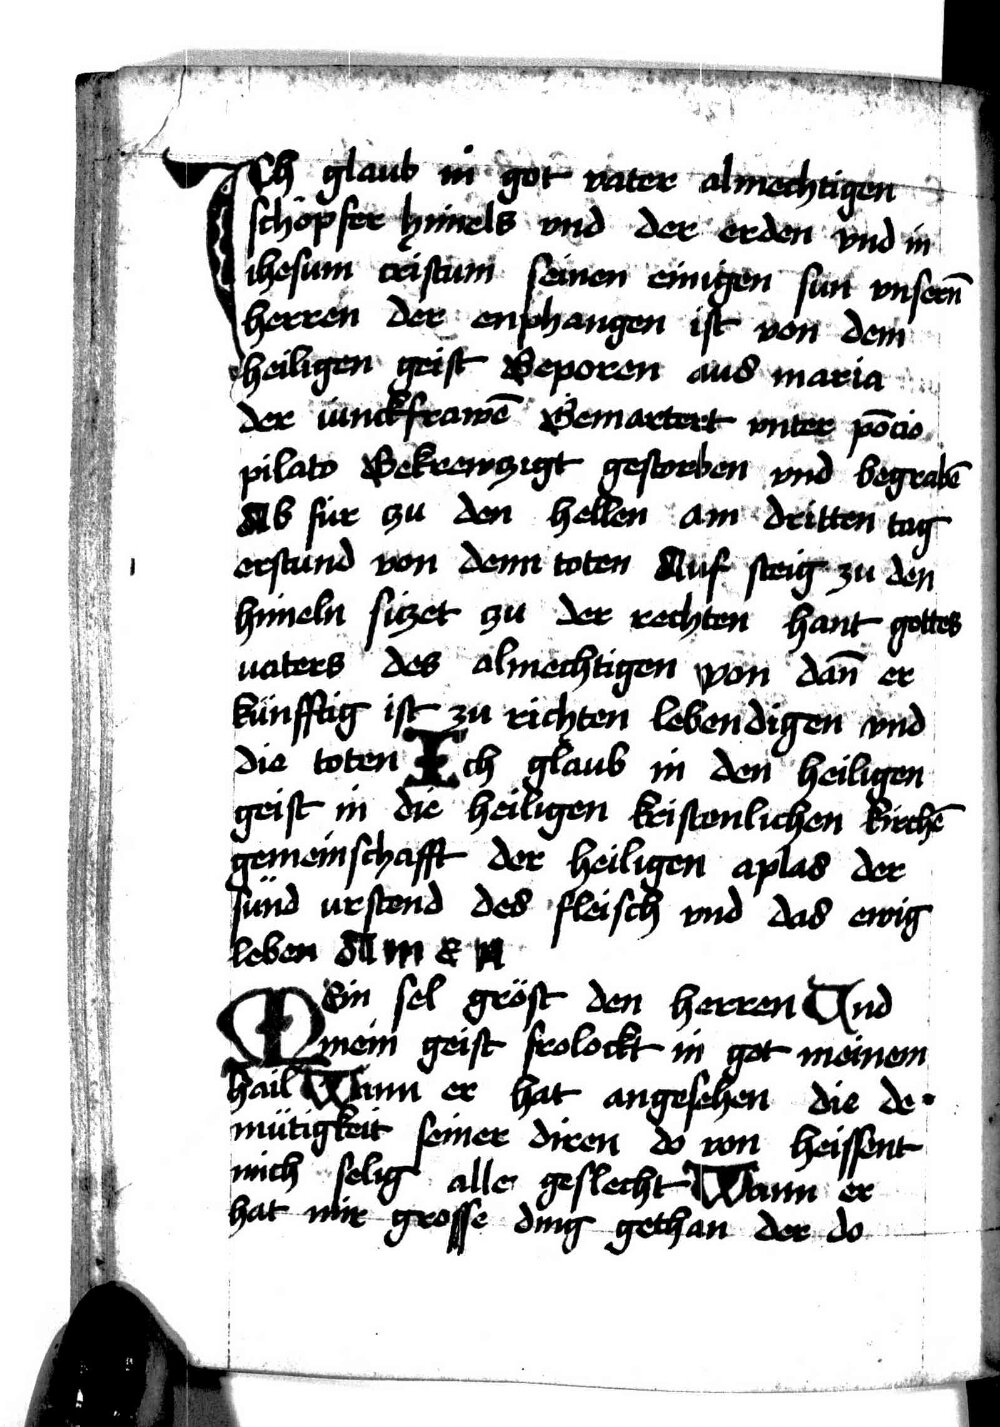 Ich glaub in got vater almechtigen
schöpfer himels vnd der erden vnd in
ihesum cristum seinen einigen sun vnsern̄
herren der enphangen ist von dem
heiligen geist Geporen aus maria
der iunckfrawē Gemartert vnter pōcio
pilato Gekrewzigt gestorben vnd begrabē
Ab fur zu den hellen am dritten tag
erstund von denn toten Auf steig zu den
himeln sizet zu der rechten hant gottes
vaters des almechtigen von dañ er
künfftig ist zu richten lebendigen vnd
die toten Ich glaub in den heiligen
geist in die heiligen kristenlichen kirchē
gemeinschafft der heiligen aplas der
sünd vrstend des fleisch vnd das ewig
leben Amen
Mein sel gröst den herren Vnd
mein geist frolockt in got meinem
hail Wann er hat angesehen die de
mütigkeit seiner diren do von heissent
mich selig alle geslecht Wann er
hat mir grosse ding gethan der do